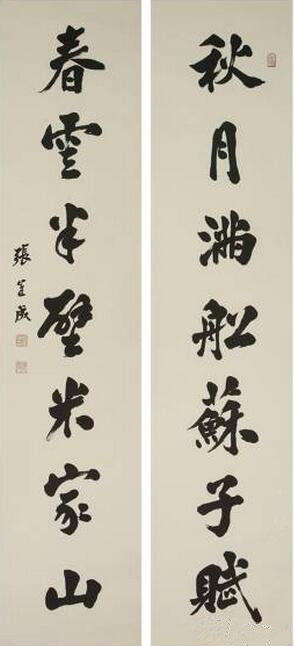 秋月满船蘇子賦
春雲半壁米家山
張星成